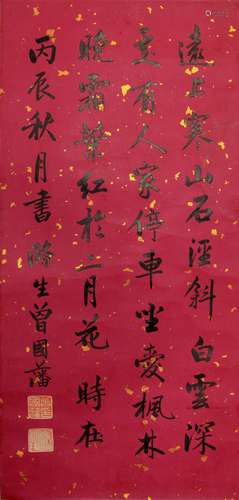 遠上寒山石逕斜白雲深
處有人家停車坐愛楓林
晚霜葉紅於二月花時在
丙辰秋月書滌生曾國藩